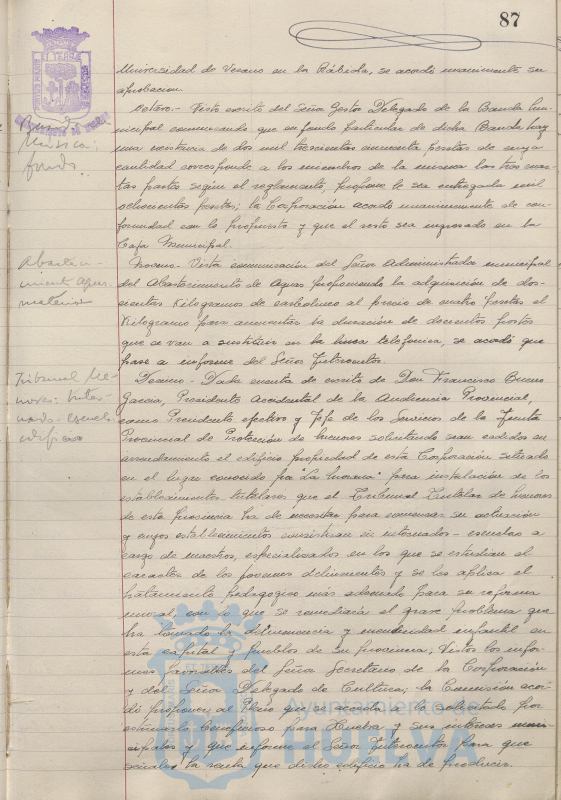 87
Universidad de Verano en la Rábida, se acordó unanimemente su
aprobacion.
Octavo.- Visto escrito del Señor Gestor Delegado de la Banda Mu-
nicipal comunicando que en fondo particular de dicha Banda hay
una existencia de dos mil trescientas cincuenta pesetas de cuya
cantidad corresponde a los miembros de la misma las tres cuar-
tas partes segun el reglamento, propone le sea entregada mil
ochocientas pesetas; la Corporación acordó unanimemente de con-
formidad con lo propuesto y que el resto sea ingresado en la
Caja Municipal.
Noveno.- Vista comunicación del Señor Administrador municipal
del Abastecimiento de Aguas proponiendo la adquisicion de dos-
cientos Kilogramos de carbolineo al precio de cuatro pesetas el
Kilogramo para aumentar la duración de doscientos postes
que se van a sustituir en la linea telefónica, se acordó que
pase a informe del Señor Interventor.
Decimo.- Dada cuenta de escrito de Don Francisco Bueno
Garcia, Presidente Accidental de la Audiencia Provincial,
como Presidente efectivo y Jefe de los Servicios de la Junta
Provincial de Protección de Menores solicitando sean cedidos en
arrendamiento el edificio propiedad de esta Corporación situado
en el lugar conocido por "La
para instalación de los
establecimientos titulares que el Tribunal Tutelar de Menores
de esta provincia ha de necesitar para comenzar su actuación
y cuyos establecimientos consistirán en internados-escuelas a
cargo de maestros, especializados en los que se estudian el
caracter de los jovenes delincuentes y se les aplica el
tratamiento pedagogico más adecuado para su reforma
moral, con lo que se remediaría el grave problema que
ha tomado la delincuencia y mendicidad infantil en
esta capital y pueblos de su provincia; Vistos los infor-
mes favorables del Señor Secretario de la Corporación
y del Señor Delegado de Cultura; la Comisión acor-
dó proponer al Pleno que se acceda a lo solicitado por
estimarlo beneficioso para Huelva y sus intereses muni-
cipales y que informe el Señor Interventor para que
señale la renta que dicho edificio ha de producir.
Musica:
fondo.
Abasteci-
miento Aguas
material
Tribunal Me-
nores: Inter-
nado-escuela
edificio
Ayuntamiento de
HUELVA